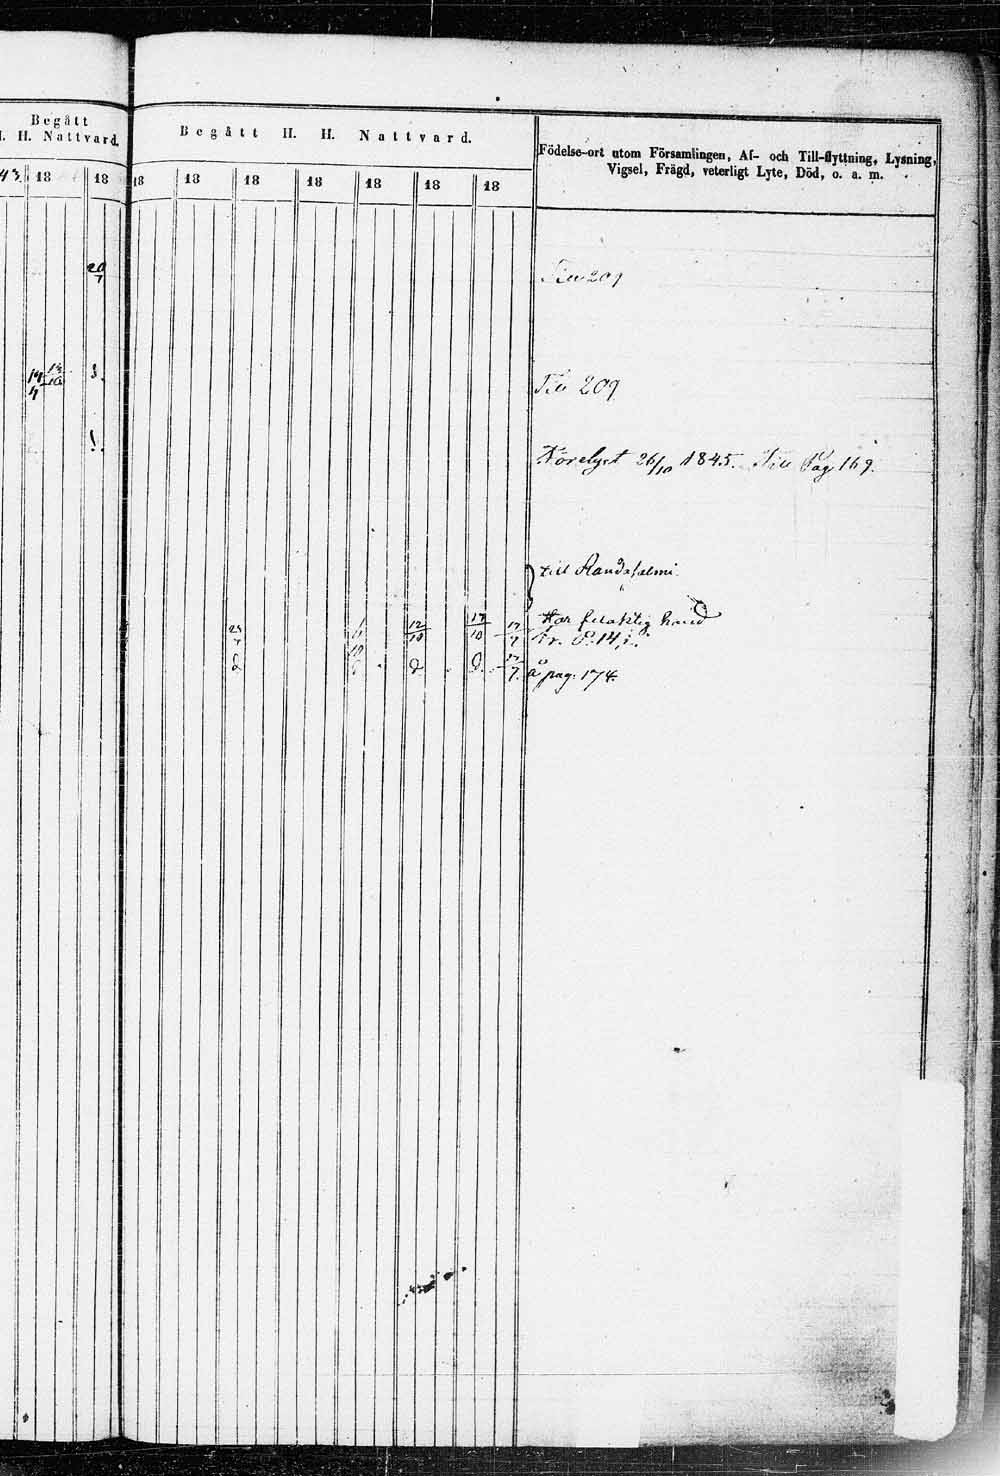 Begått
H. H. Nattvard.
Begått H. H. Nattvard.
Födelse-ort utom Församlingen, Af- och Till-flyttning, Lysning,
Vigsel, Frägd, veterligt Lyte, Död, o. a. m.
43. 18 18 18 18 18 18 18 18 18
20/7
Till 209
14/4 13/10 d.
Till 209
d.
Förelyst 26/10 1845. Till Pag 169.
till Randasalmi.
Har felaktig hand
24/7 12/10 17/10 17/7 Kr. P. 14, i.
d d d 17/7. å pag. 174.